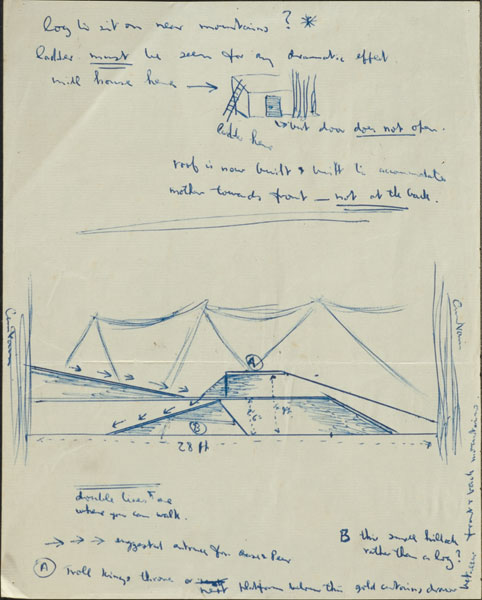 log to sit on near mountains ? *
ladder must be seen for any dramatic effect.
mill house here →
ladder here
but door does not open.
roof is now built & will to accommodate
mother towards front — not at the back.
Curtain
Curtain
A
B
28 ft
double lines are
where you can walk.
→ → → suggested entrance for
B this small hillock
rather than a log?
between front & back mountains
A Troll kings throne or next platform gold curtains